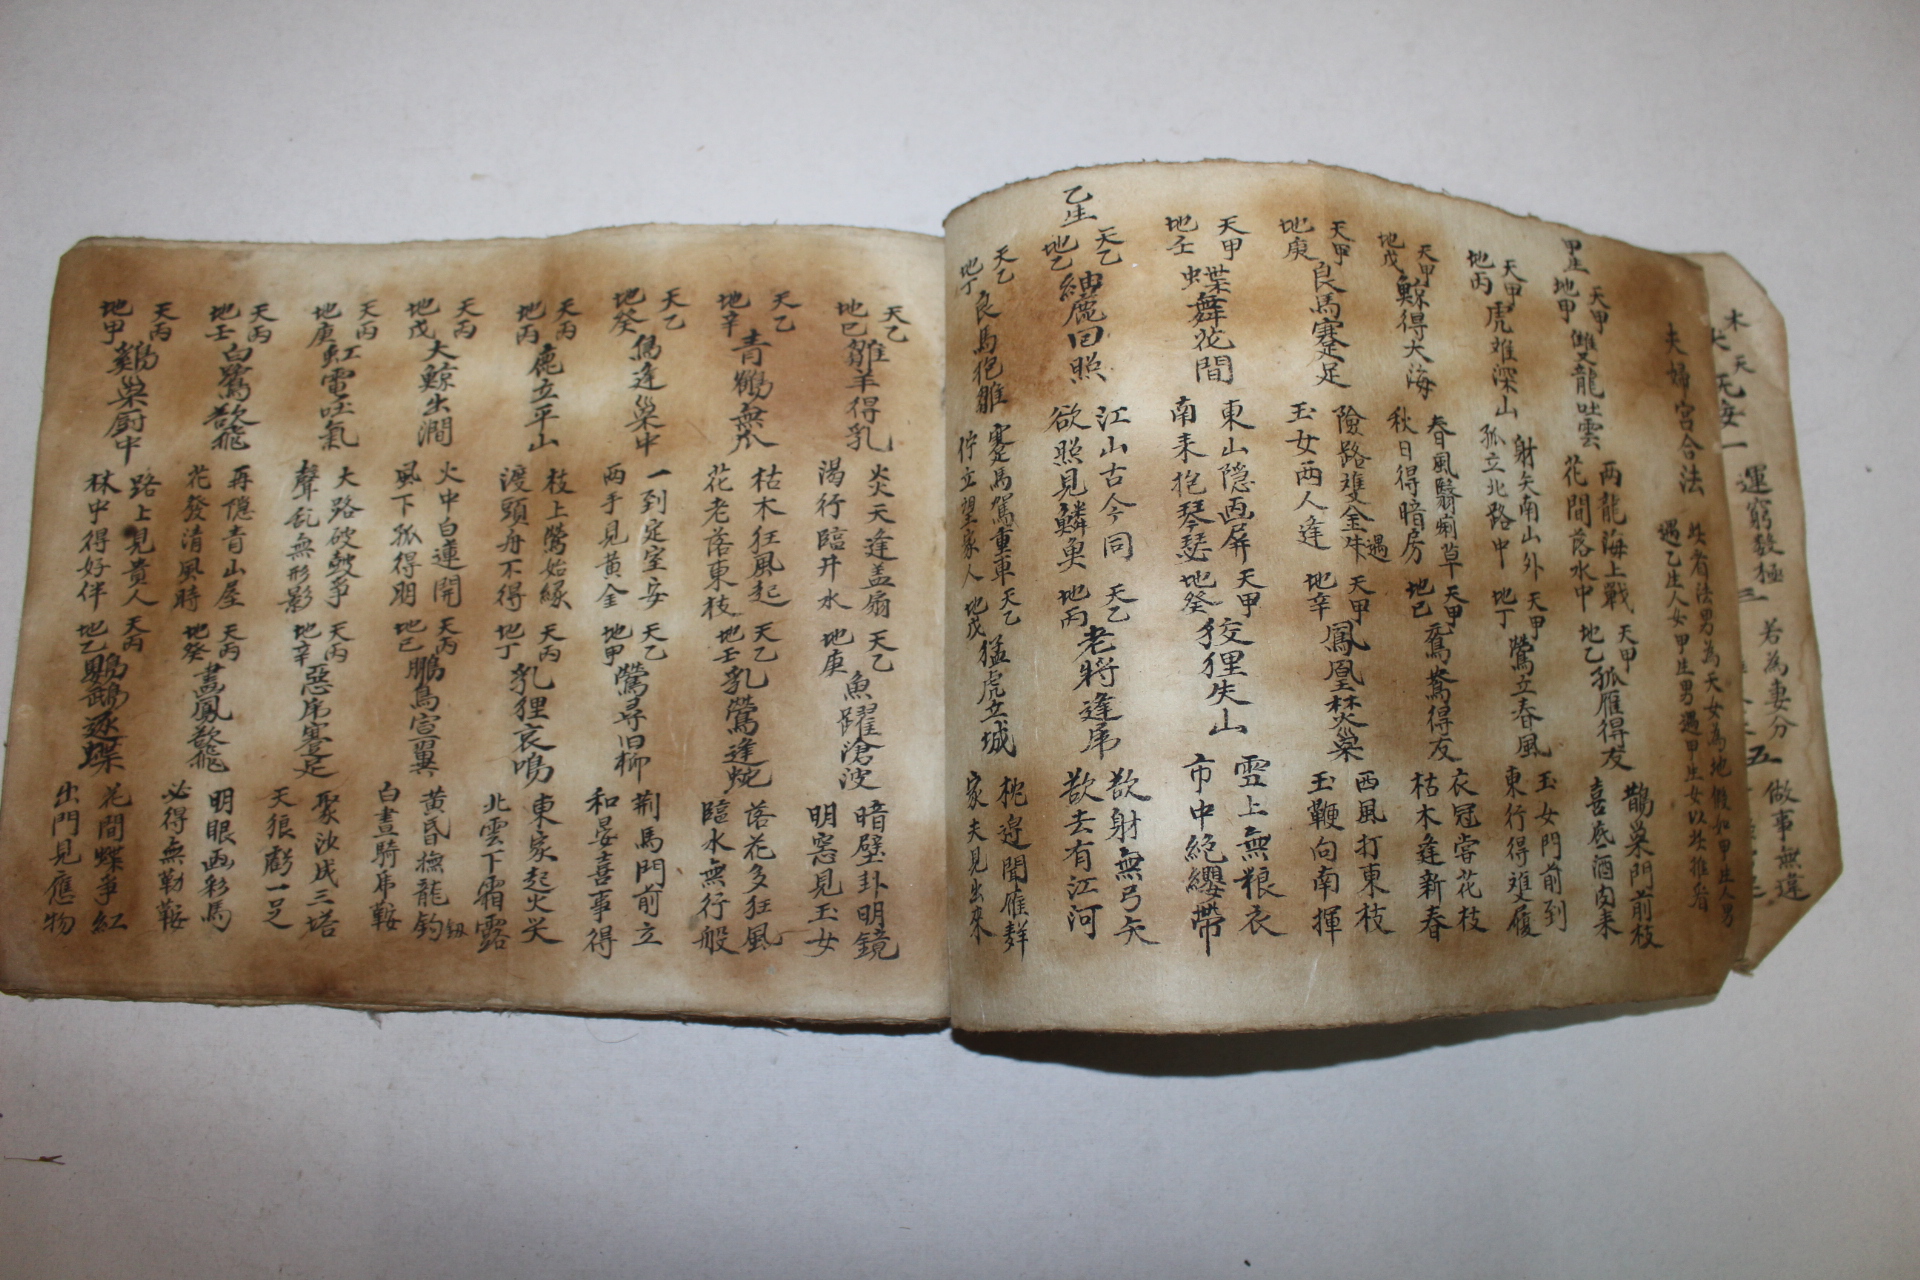 運窮數極
若為妻分
做事無違
夫婦宮合法
此看法男為天女為地假如甲生人男
遇乙生人女甲生男遇甲生女以此推看
甲生
天甲
地甲
雙龍吐雲
兩龍海上戰
花間落水中
天甲
地乙
孤雁得友
鵲巢門前枝
喜底酒肉来
天甲
地丙
虎难深山
射矢南山外
孤立北路中
天甲
地丁
鶯立春風
玉女門前到
東行得难履
天甲
地戊
鯨得大海
春風翳痢草
秋日得暗房
天甲
地己
鴛鴦得友
衣冠甞花枝
枯木逢新春
天甲
地庚
良馬蹇足
險路难金珠
玉女两人逢
遇
天甲
地辛
鳳凰焚巢
西風打東枝
玉鞭向南揮
天甲
地壬
蝶舞花間
東山隠画屏
南来抱琴瑟
天甲
地癸
狡狸失山
雲上無粮衣
市中絶纓帶
乙生
天乙
地乙
回照
江山古今同
欲照見鱗魚
天乙
地丙
老將逢虎
欲射無弓矢
欲去有江河
天乙
地丁
良馬抱雛
蹇馬駕重車
佇立望家人
天乙
地戊
猛虎立城
枕邊聞雁群
家夫見出來
天乙
地己
雛羊得乳
炎天逢盖扇
渴行臨井水
天乙
地庚
魚躍滄波
暗壁卦明鏡
明窓見玉女
天乙
地辛
青鶴無爪
枯木狂風起
花老落東枝
天乙
地壬
乳鶯逢蛇
落花多狂風
臨水無行般
天乙
地癸
逢巢中
一到定室安
两手見黃金
天乙
地甲
鶯尋旧柳
荆馬門前立
和晏喜事得
天丙
地丙
鹿立平山
枝上鶯始縁
渡頭舟不得
天丙
地丁
乳狸哀鳴
東家起火災
北雲下霜露
天丙
地戊
大鯨出澗
火中白蓮開
風下孤得朋
天丙
地己
鵬鳥宮翼
黃昏撫龍釣
白晝騎虎鞍
天丙
地庚
虹電吐氣
大路破鼓爭
聲乱無形影
天丙
地辛
惡虎蹇足
聚汝成三塔
天狼虧一足
天丙
地壬
白鷺欲飛
再隠青山屋
花發清風時
天丙
地癸
畫鳳欲飛
明眼画彩馬
必得無勒鞍
天丙
地甲
鷄巢厨中
路上見貴人
林中得好伴
天丙
地乙
鸚鵡逐蝶
花間蝶爭紅
出門見應物